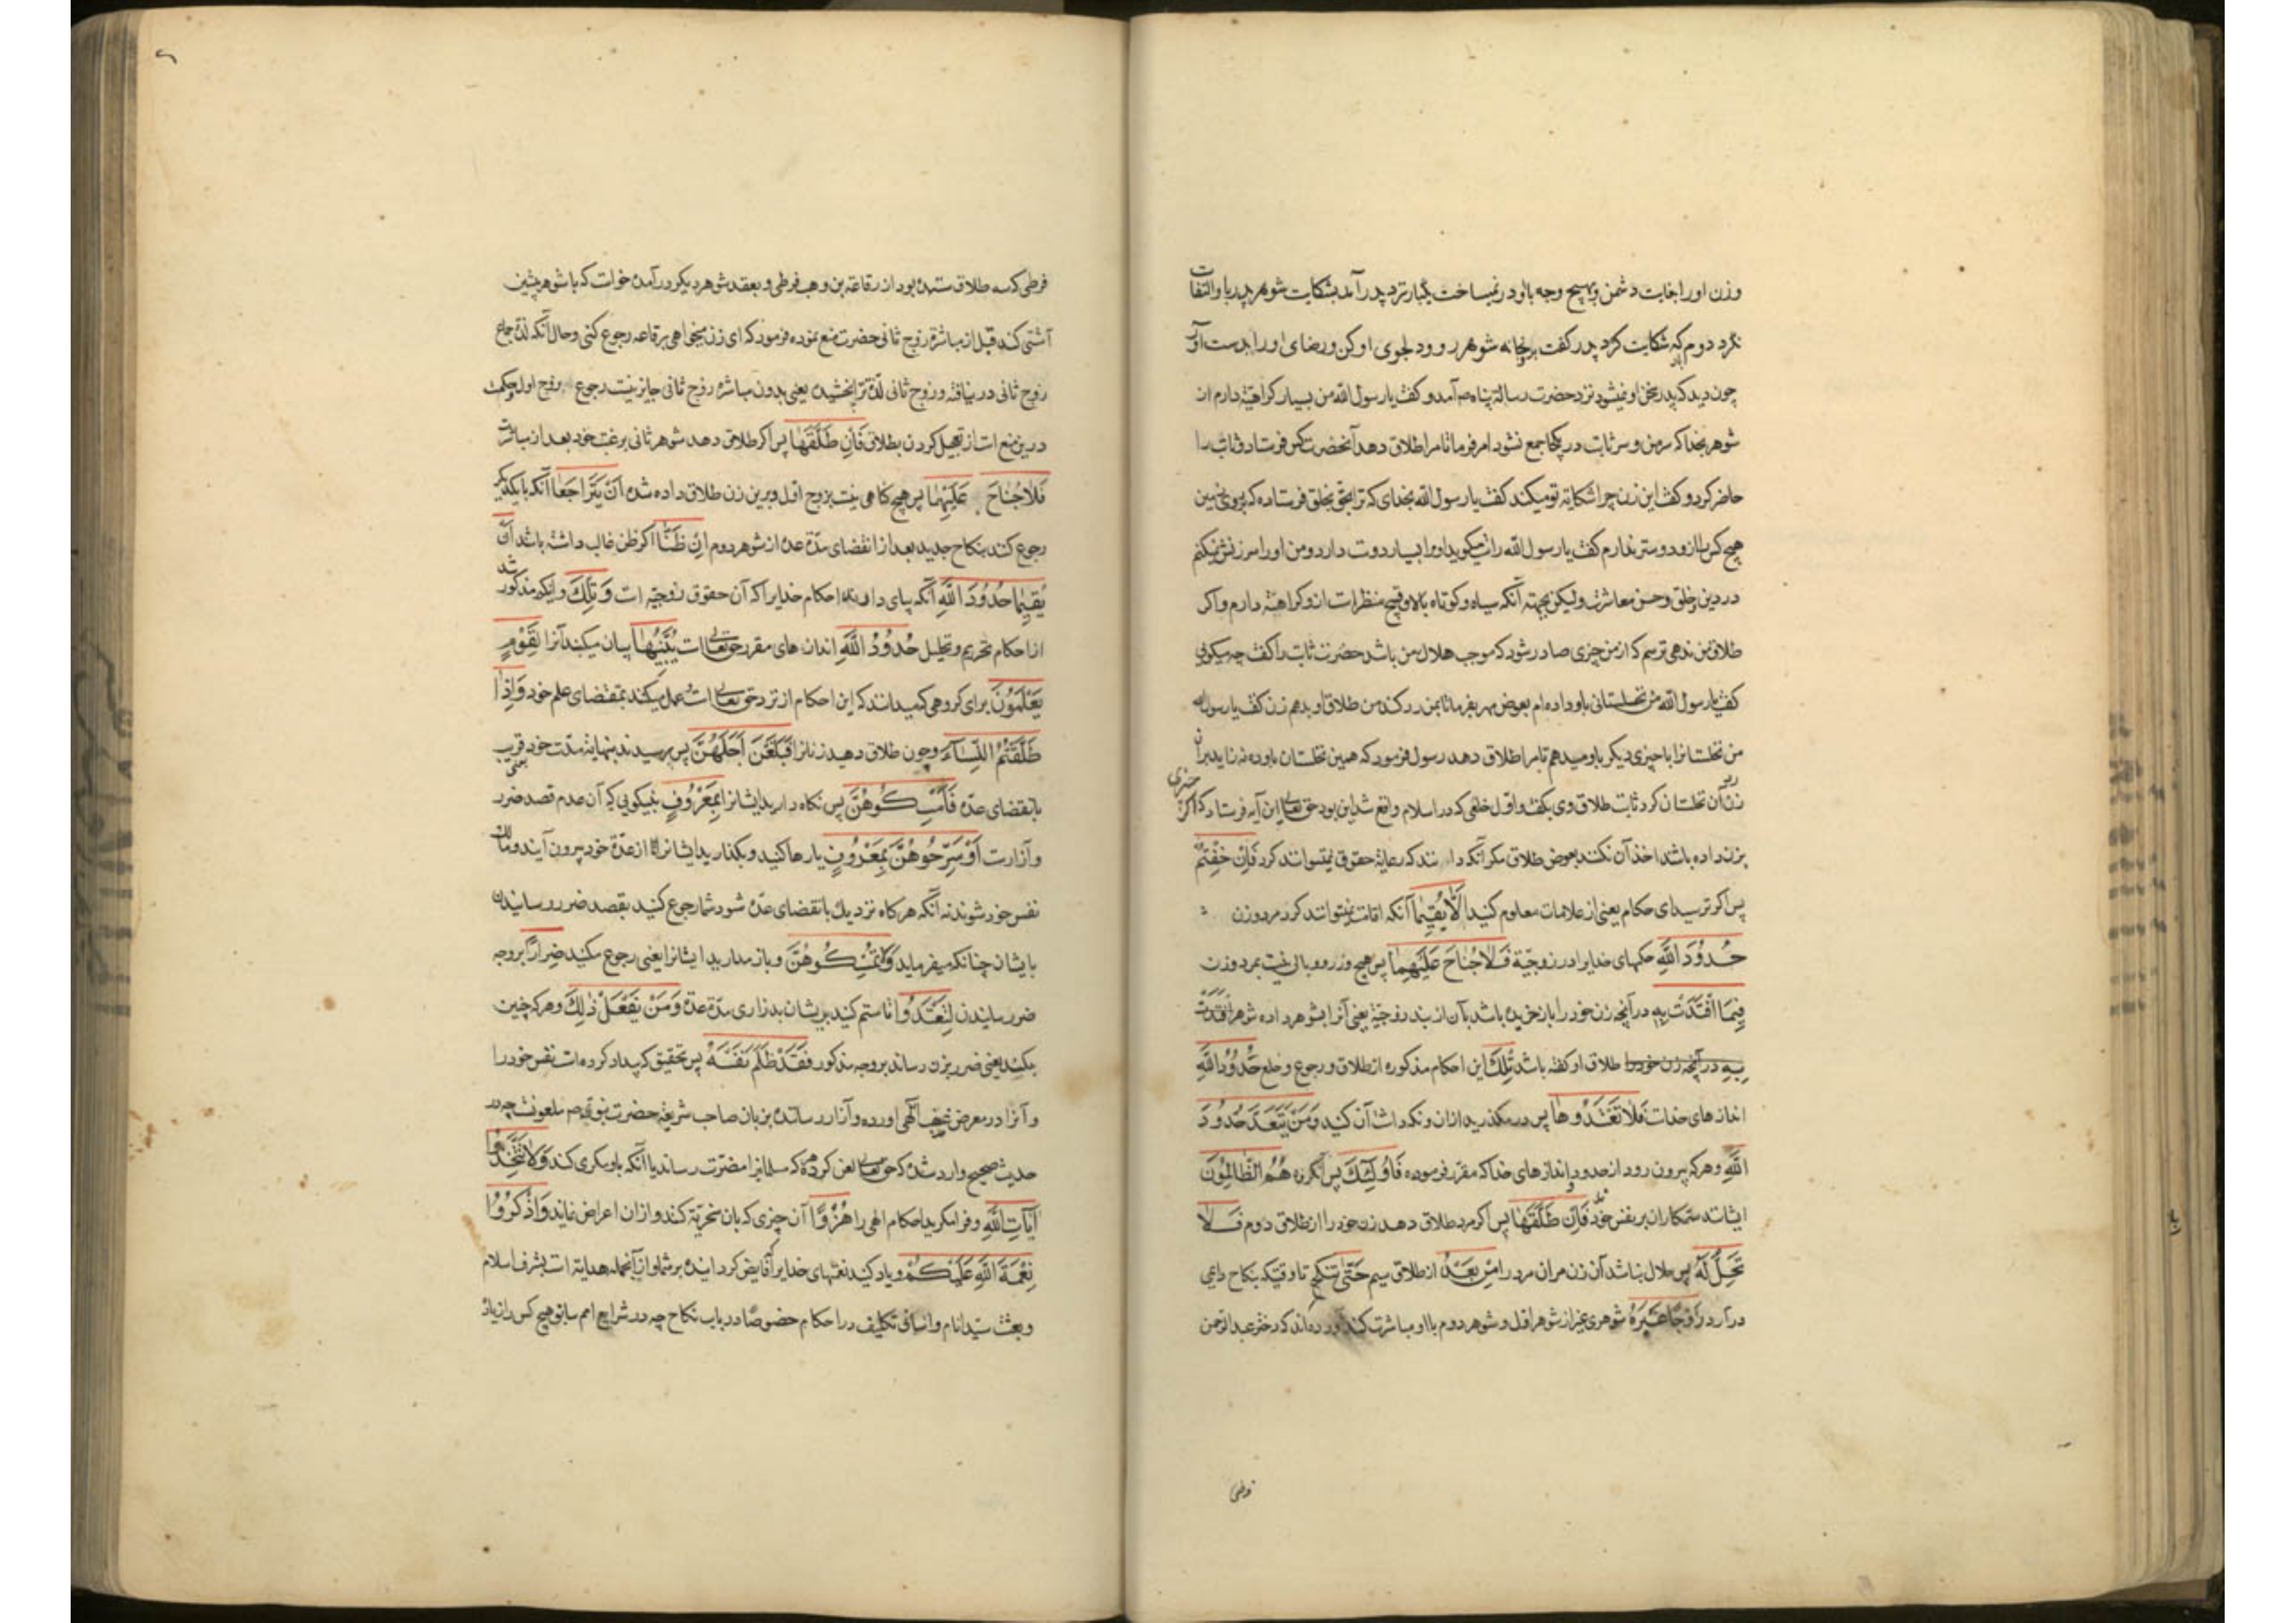 وزن او را بغایت دشمن و بهیچ وجه با او در نمیساخت یکبار نزد پدر آمد بشکایت شوهر پدر باو التفات
نکرد دوم که شکایت کرد پدر گفت بخانه شوهر رو و دلجوی او کن و رضای او را بدست آور
چون دید که پدر بخن او نمیشود نزد حضرت رسالة پناه صم آمد و کفت یا رسول الله من بسیار کراهیة دارم از
شوهر بخدا که سر من و سر ثابت در یکجا جمع نشود امر فرما تا مرا طلاق دهد آنحضرت کس فرستاد و ثابت را
حاضر کرد و کفت این زن چرا شکایة تو میکند کفت یا رسول الله بخدای که ترا بحق بخلق فرستاده که بروی زمین
هیچ کس را ازو دوستر ندارم کفت یا رسول الله راست میکوید او مرا بسیار دوست دارد و من او را سرزنش نمیکنم
در دین و خلق و حسن معاشرت ولیکن بجهته آنکه سیاه و کوتاه بالا و قبیح منظر است ازو کراهیة دارم و اکر
طلاق من ندهی ترسم که از من چیزی صادر شود که موجب هلاک من باشد حضرت ثابت را کفت چه میکویی
کفت یا رسول الله من نخلستانی باو داده ام بعوض مهر بفرما تا بمن رد کند من طلاق او بدهم زن کفت یا رسول الله
من نخلستانرا با چیزی دیکر باو میدهم تا مرا طلاق دهد رسول فرمود که همین نخلستان باو ده نه زاید بر آن
زن آن نخلستان رد کرد ثابت طلاق وی بکفت و اول خلعی که در اسلام واقع شد این بود حق تعالی این آیه فرستاد که اکر چیزی
بزن داده باشد اخذ آن نکنند بعوض طلاق مکر آنکه دانند که رعایة حقوق نمیتوانند کرد فَإِنْ خِفْتُمْ
پس اکر ترسید ای حکام یعنی از علامات معلوم کنید أَلَّا يُقِيمَا آنکه اقامت نمیتوانند کرد مرد و زن
حُدُودَ اللَّهِ حکمهای خدایرا در زوجیّة فَلَا جُنَاحَ عَلَيْهِمَا پس هیچ وزر و وبال نیست بمرد و زن
فِيمَا افْتَدَتْ بِهِ در آنچه زن خود را باز خریده باشد بآن از بند زوجیّة یعنی آنرا بشوهر داده شوهر افْتَدَتْ
بِهِ در آنچه زن خود را طلاق او کفته باشد تِلْكَ این احکام مذکوره از طلاق و رجوع و خلع حُدُودُ اللَّهِ
اندازهای خداست فَلَا تَعْتَدُوهَا پس در مکذرید ازان و نکه داشت آن کنید وَمَنْ يَتَعَدَّ حُدُودَ
اللَّهِ و هر که بیرون رود از حدود و اندازهای خدا که مقرر فرموده فَأُولَٰئِكَ پس آنکروه هُمُ الظَّالِمُونَ
ایشانند ستمکاران بر نفس خود فَإِنْ طَلَّقَهَا پس اکر مرد طلاق دهد زن خود را از طلاق دوم فَلَا
تَحِلُّ لَهُ پس حلال نباشد آن زن مران مرد را مِنْ بَعْدُ از طلاق سیم حَتَّىٰ تَنْكِحَ تا وقتیکه بنکاح داعی
در آرد زَوْجًا غَيْرَهُ شوهری غیر از شوهر اول و شوهر دوم با او مباشرت کند آورده اند که دختر عبد الرحمن
قرظی
قرظی که سه طلاق ستده بود از رفاعة بن وهب قرظی و بعقد شوهر دیکر در آمده خواست که با شوهر پیشین
آشتی کند قبل از مباشرة زوج ثانی حضرت منع نموده فرمود که ای زن میخواهی برفاعه رجوع کنی و حال آنکه لذة جماع
زوج ثانی در نیافته و زوج ثانی لذّة ترا نچشیده یعنی بدون مباشرة زوج ثانی جایز نیست رجوع بزوج اول و حکمت
درین منع است از تعجیل کردن بطلاق فَإِنْ طَلَّقَهَا پس اکر طلاق دهد شوهر ثانی برغبت خود بعد از مباشرت
فَلَا جُنَاحَ عَلَيْهِمَا پس هیچ کناهی نیست بزوج اول و برین زن طلاق داده شده أَنْ يَتَرَاجَعَا آنکه با یکدیکر
رجوع کنند بنکاح جدید بعد از انقضای مدّة عده از شوهر دوم إِنْ ظَنَّا اکر ظن غالب داشته باشند أَنْ
يُقِيمَا حُدُودَ اللَّهِ آنکه بپای دارند احکام خدایرا که آن حقوق زوجیّه است وَتِلْكَ و اینکه مذکور شد
از احکام تحریم و تحلیل حُدُودُ اللَّهِ اندازهای مقرر حق تعالی است يُبَيِّنُهَا بیان میکند آنرا لِقَوْمٍ
يَعْلَمُونَ برای کروهی که میدانند که این احکام از نزد حق تعالی است و عمل میکنند بمقتضای علم خود وَإِذَا
طَلَّقْتُمُ النِّسَاءَ و چون طلاق دهید زنانرا فَبَلَغْنَ أَجَلَهُنَّ پس برسیدند بنهایة مدّت خود یعنی قریب
بانقضای عدّه فَأَمْسِكُوهُنَّ پس نکاه دارید ایشانرا بِمَعْرُوفٍ بنیکویی که آن عدم قصد ضرر
و آزارست أَوْ سَرِّحُوهُنَّ بِمَعْرُوفٍ یا رها کنید و بکذارید ایشانرا تا از عدّة خود بیرون آیند و مالک
نفس خود شوند نه آنکه هر کاه نزدیک بانقضای عدّه شود شما رجوع کنید بقصد ضرر رسانیدن
بایشان چنانکه میفرماید وَلَا تُمْسِكُوهُنَّ و باز مدارید ایشانرا یعنی رجوع مکنید ضِرَارًا بر وجه
ضرر رسانیدن لِتَعْتَدُوا تا ستم کنید بریشان بدزاری مدّة عدّه وَمَنْ يَفْعَلْ ذَٰلِكَ و هر که چنین
بکند یعنی ضرر بزن رساند بر وجه مذکور فَقَدْ ظَلَمَ نَفْسَهُ پس تحقیق که بیداد کرده است نفس خود را
و آنرا در معرض غضب الهی آورده و آزار رسانده بزبان صاحب شریعة حضرت نبوی صم ملعونست چه در
حدیث صحیح وارد شده که حق تعالی لعن کرده هر که مسلمانرا مضرّت رساند یا آنکه باو مکری کند وَلَا تَتَّخِذُوا
آيَاتِ اللَّهِ و فرا مکیرید احکام الهی را هُزُوًا آن چیزی که بان سخریّة کنند و ازان اعراض نمایند وَاذْكُرُوا
نِعْمَةَ اللَّهِ عَلَيْكُمْ و یاد کنید نعمتهای خدایرا که فایض کردانیده بر شما و از آنجمله هدایة است بشرف اسلام
و بعثت سیّد انام و انساق تکلیف در احکام خصوصًا در باب نکاح چه در شرایع امم سابق هیچ کس را زیاد